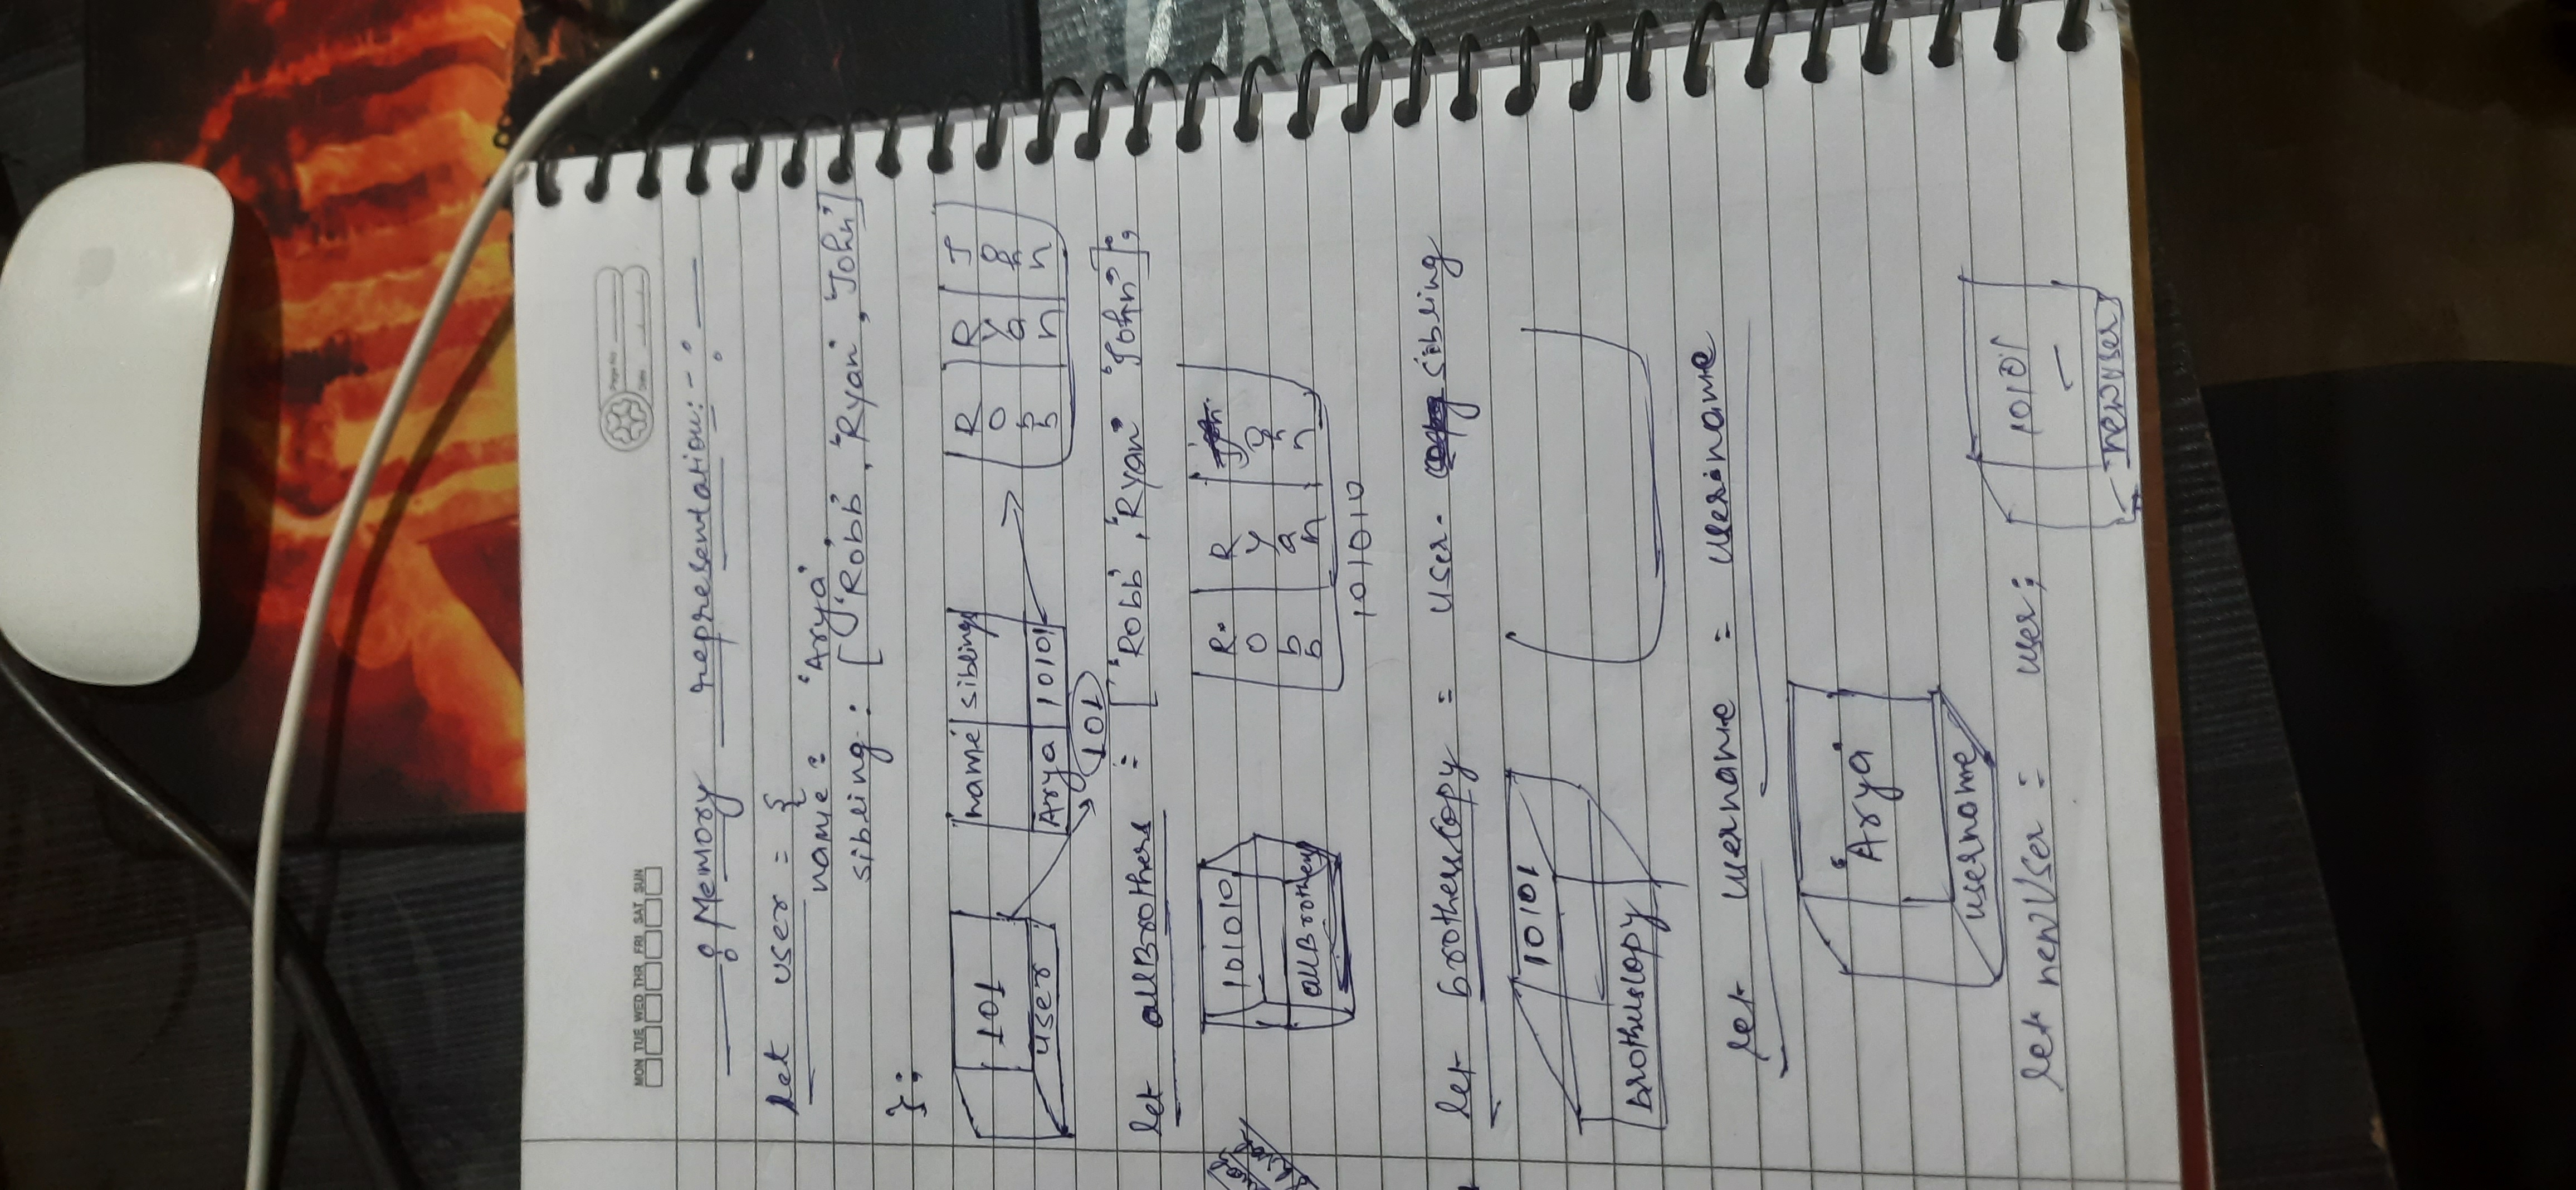 MON TUE WED THR FRI SAT SUN
Page No.
Date
Memory representation:-
let user = {
name: "Arya",
sibling: ["Robb", "Ryan", "John"]
};
101
user
name siblings
Arya 10101
101
R o b b
R y a n
J o h n
let allBrothers = ["Robb", "Ryan" "John"];
101010
allBrothers
R o b b
R y a n
o h n
101010
let brothersCopy = user. sibling
10101
brotherscopy
let username = user.name
"Arya"
username
let newUser = user;
10101
newuser